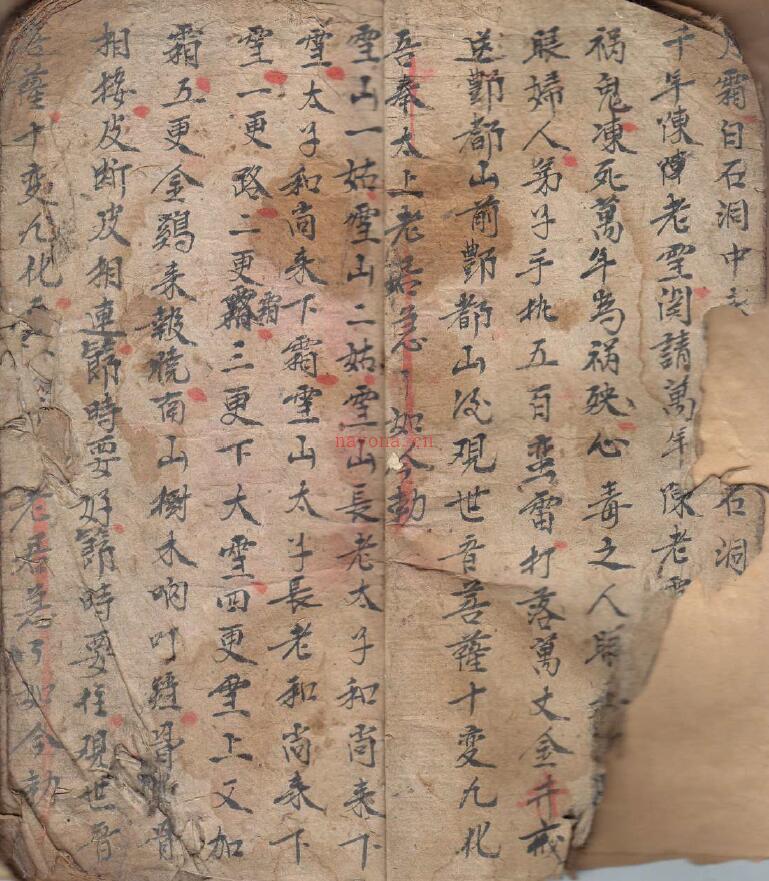 霜白石洞中
石洞
千年陳陣老雪関請萬年陳老
禍鬼凍死萬年為禍殃心毒之人
眼婦人弟子手扒五百蛮雷打落萬丈金井戒
送酆都山前酆都山後現世音菩薩十変九化
吾奉太上老君急〻如令勅
雪山一姑雪山二姑雪山長老太子和尚来下
雪太子和尚来下霜雪山太子長老和尚来下
雪一更路二更霜霜三更下大雪四更雪上又加
霜五更金鷄来報曉南山樹木响叮
骨骨
相接皮断皮相連節時要好節時要住現世音
菩薩十変九化
老君急〻如令勅
nayona.cn